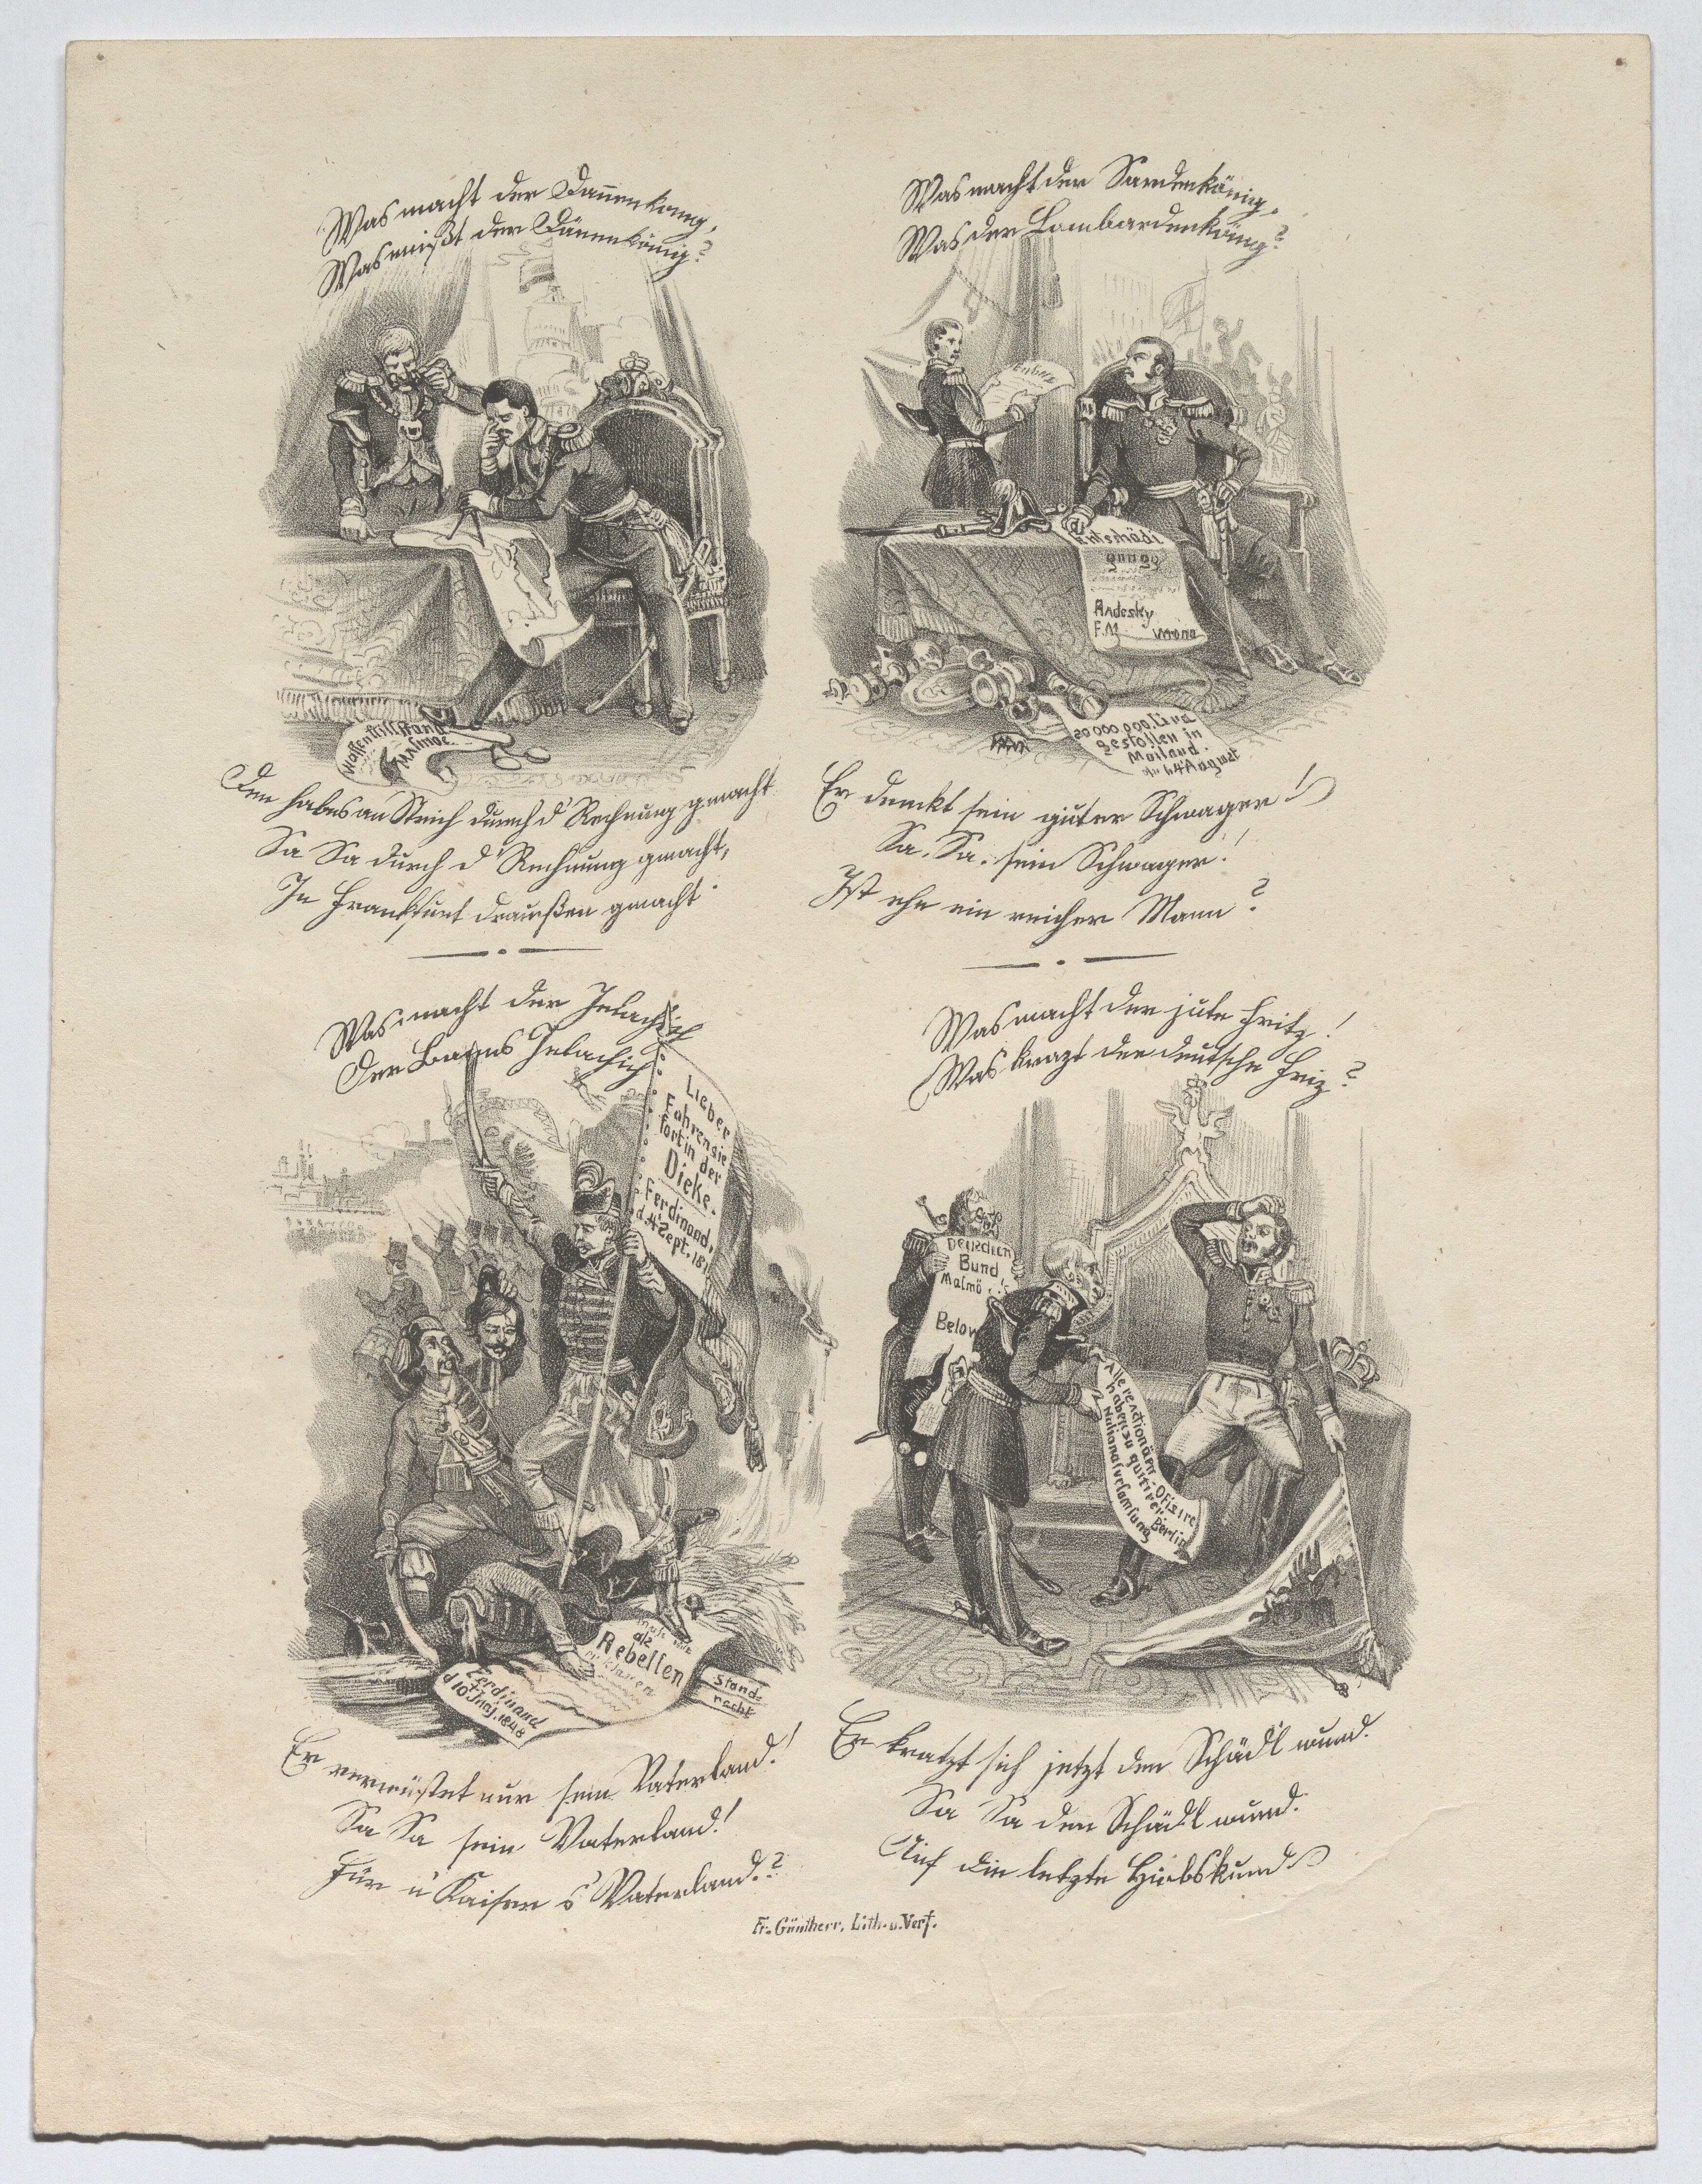 Was macht der Dannenkönig,
Was mißt der Dänenkönig?
Waffenstillstand
Malmoe.
Den habns an Strich durch d' Rechnung gmacht
Sa Sa durch d' Rechnung gmacht,
In Frankfurt draußen gmacht.
Was macht der Sardenkönig,
Was der Lombardenkönig?
Entschädi
gung
F.M.
20000,000 Lira
gestollen in
Mailand.
4 August
Er denckt sein guter Schwager!
Sa. Sa. sein Schwager!
Ist ehn ein reicher Mann?
Was macht der Jelachich
Der Banus Jelachich?
Lieber
Fahren sie
fort in der
Dicke.
Ferdinand,
d. 4 Sept. 18
als
Rebellen
Stand-
recht
Ferdinand
d 10 Juni, 1848
Er verwüstet nur sein Vaterland!
Sa Sa sein Vaterland!
Für n' Kaiser s' Vaterland?
Was macht der jute Fritz!
Was krazt der deutsche Friz?
Deutschen
Bund
Malmö
Below
Alle reactionären Ofizire
haben zu quitiren
Nationalversamlung Berlin
Er kratzt sich jetzt den Schädl wund.
Sa Sa den Schädl wund.
Auf die letzte Hiobskund
Fr. Güntherr, Lith. u. Verf.